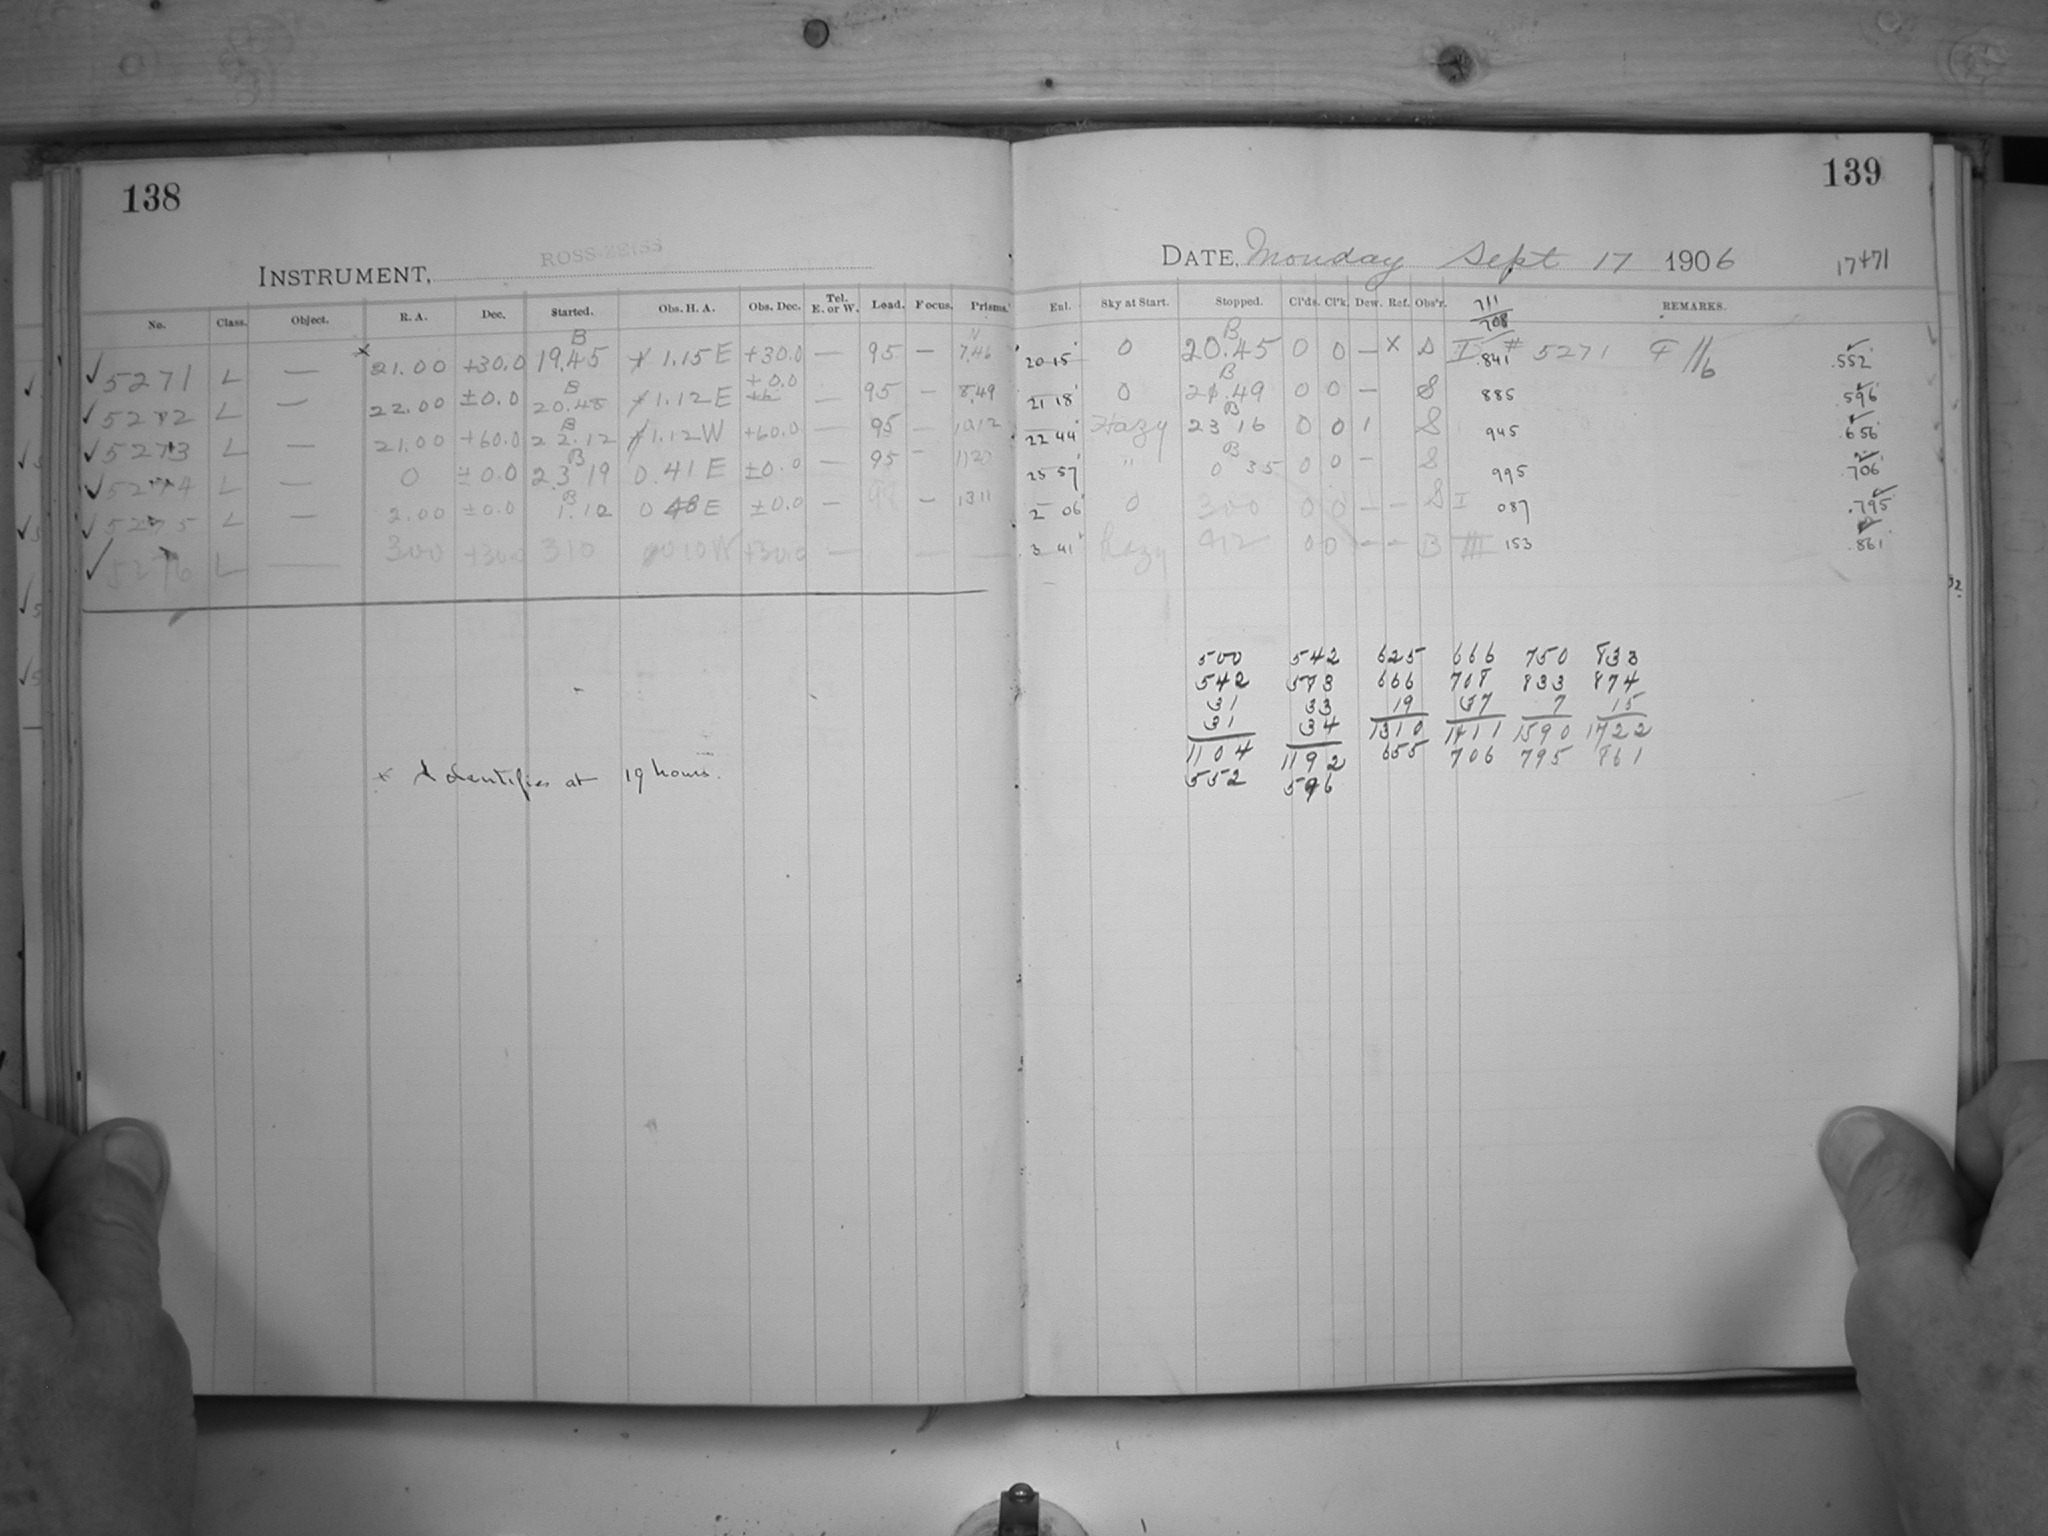 138
139
ROSS-ZEISS
INSTRUMENT,
DATE, Monday Sept 17 1906 17471
No. Class. Object. R. A. Dec. Started. Obs. H. A. Obs. Dec. Tel. E. or W. Load. Focus. Prisms. Enl. Sky at Start. Stopped. Cl'ds. Cl'k. Dew. Ref. Obs'r. 711 708 REMARKS.
✓ 5271 L — x 21.00 +30.0 B 19.45 1.15 E +30.0 — 95 — 7.46 20 15 0 B 20.45 0 0 — x S I .841 # 5271 F 11/6 .552
✓ 5272 L — 22.00 ±0.0 B 20.48 1.12 E +0.0 — 95 — 8.49 21 18 0 B 21.49 0 0 — S 885 .596
✓ 5273 L — 21.00 +60.0 B 22.12 1.12 W +60.0 — 95 — 10.12 22 44 Hazy B 23 16 0 0 1 S 945 .656
✓ 5274 L — 0 ±0.0 B 23 19 0.41 E ±0.0 — 95 - 23 57 " B 0 35 0 0 - S 995 .706
✓ 5275 L — 2.00 ±0.0 B 1.12 0 48 E ±0.0 — — 1311 2 06 0 300 0 0 — - S I 087 .795
✓ 5276 L — 300 +30.0 310 0010 W +30.0 — — — 3 41 Hazy 412 0 0 - - B III 153 .861
500 542 625 666 750 833
542 583 666 708 833 874
31 33 19 37 7 15
31 34 1310 1411 1590 1722
1104 1192 655 706 795 861
552 596
x Identifies at 19 hours.